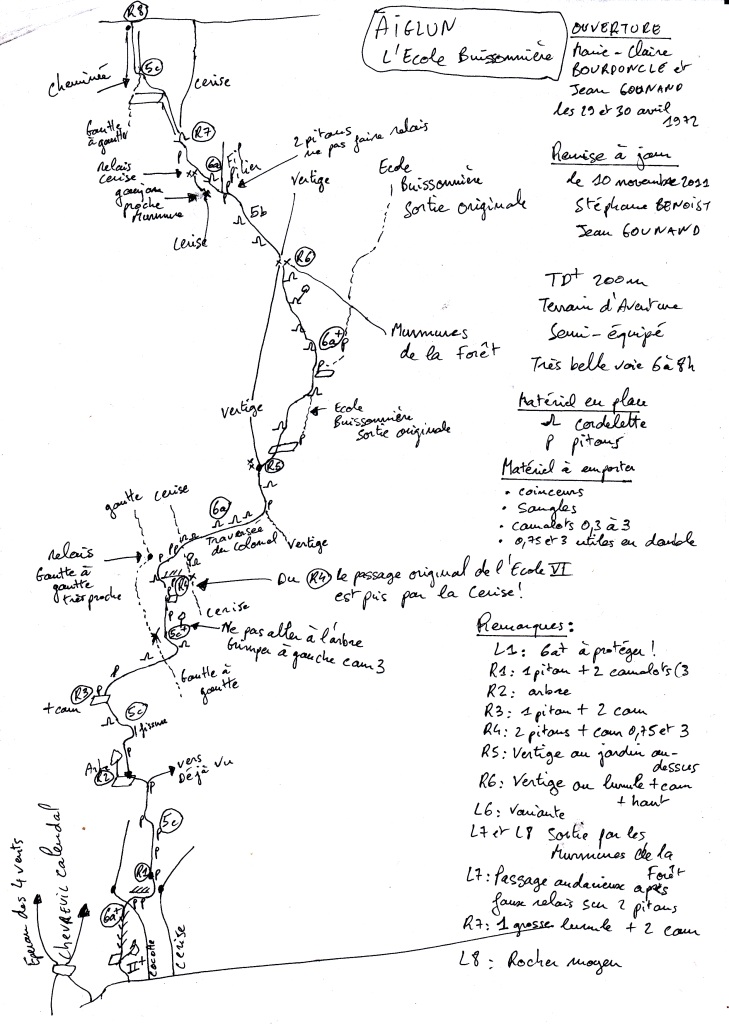 AIGLUN
L'Ecole Buissonnière
OUVERTURE
Marie-Claire
BOURDONCLE et
Jean GOUNAND
les 29 et 30 avril
1972
Remise à jour
le 10 novembre 2011
Stéphane BENOIST
Jean GOUNAND
TD+ 200m
Terrain d'Aventure
Semi-équipé
Très belle voie 6 à 8h
Matériel en place
cordelette
P pitons
Matériel à emporter
• coinceurs
• Sangles
• camalots 0,3 à 3
• 0,75 et 3 utiles en double
Remarques:
L1: 6a+ à protéger!
R1: 1 piton + 2 camalots (3
R2: arbre
R3: 1 piton + 2 cam
R4: 2 pitons + cam 0,75 et 3
R5: Vertige au jardin au-
dessus
R6: Vertige ou lunule + cam
+ haut
L6: variante
L7 et L8 Sortie par les
Murmures de la
Forêt
L7: Passage audacieux après
faux relais sur 2 pitons
R7: 1 grosse lunule + 2 cam
L8: Rocher moyen
R8
5c
cheminée
cerise
Goutte
à goutte
R7
relais
cerise
goujon
proche
Murmure
cerise
6a
Fil
Pilier
2 pitons
ne pas faire relais
5b
Vertige
Ecole
Buissonnière
Sortie originale
R6
6a+
P
Murmures
de la Forêt
Vertige
Ecole
Buissonnière
Sortie originale
R5
goutte
cerise
6a
Traversée
du Colonel
Vertige
relais
Goutte à
goutte
très proche
R4
Du R4 le passage original de l'Ecole VI
est pris par la Cerise!
cerise
5c+
Ne pas aller à l'arbre
Grimper à gauche cam 3
Goutte à
goutte
R3
+ cam
5c
fissure
Arbre
R2
vers
Déjà Vu
5c
R1
6a+
II+
cocotte
cerise
Eperon des 4 vents
Chevreuil Calendal